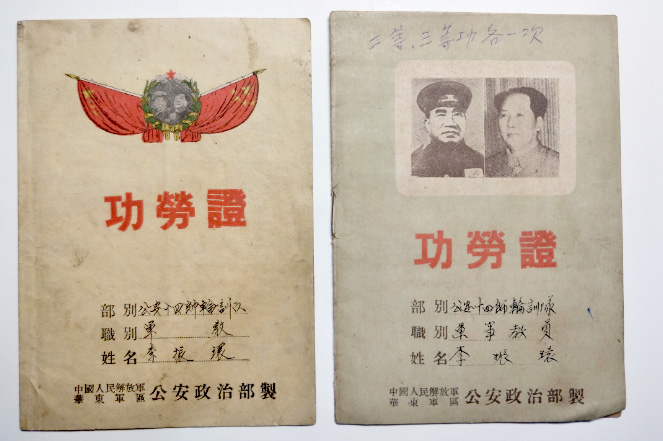 功勞證
部別 公安十四師輪訓队
職別 軍教
姓名 李振環
中國人民解放軍
華東軍區 公安政治部製
二等、三等功各一次
功勞證
部別 公安十四師輪訓队
職別 軍事教員
姓名 李振環
中國人民解放軍
華東軍區 公安政治部製